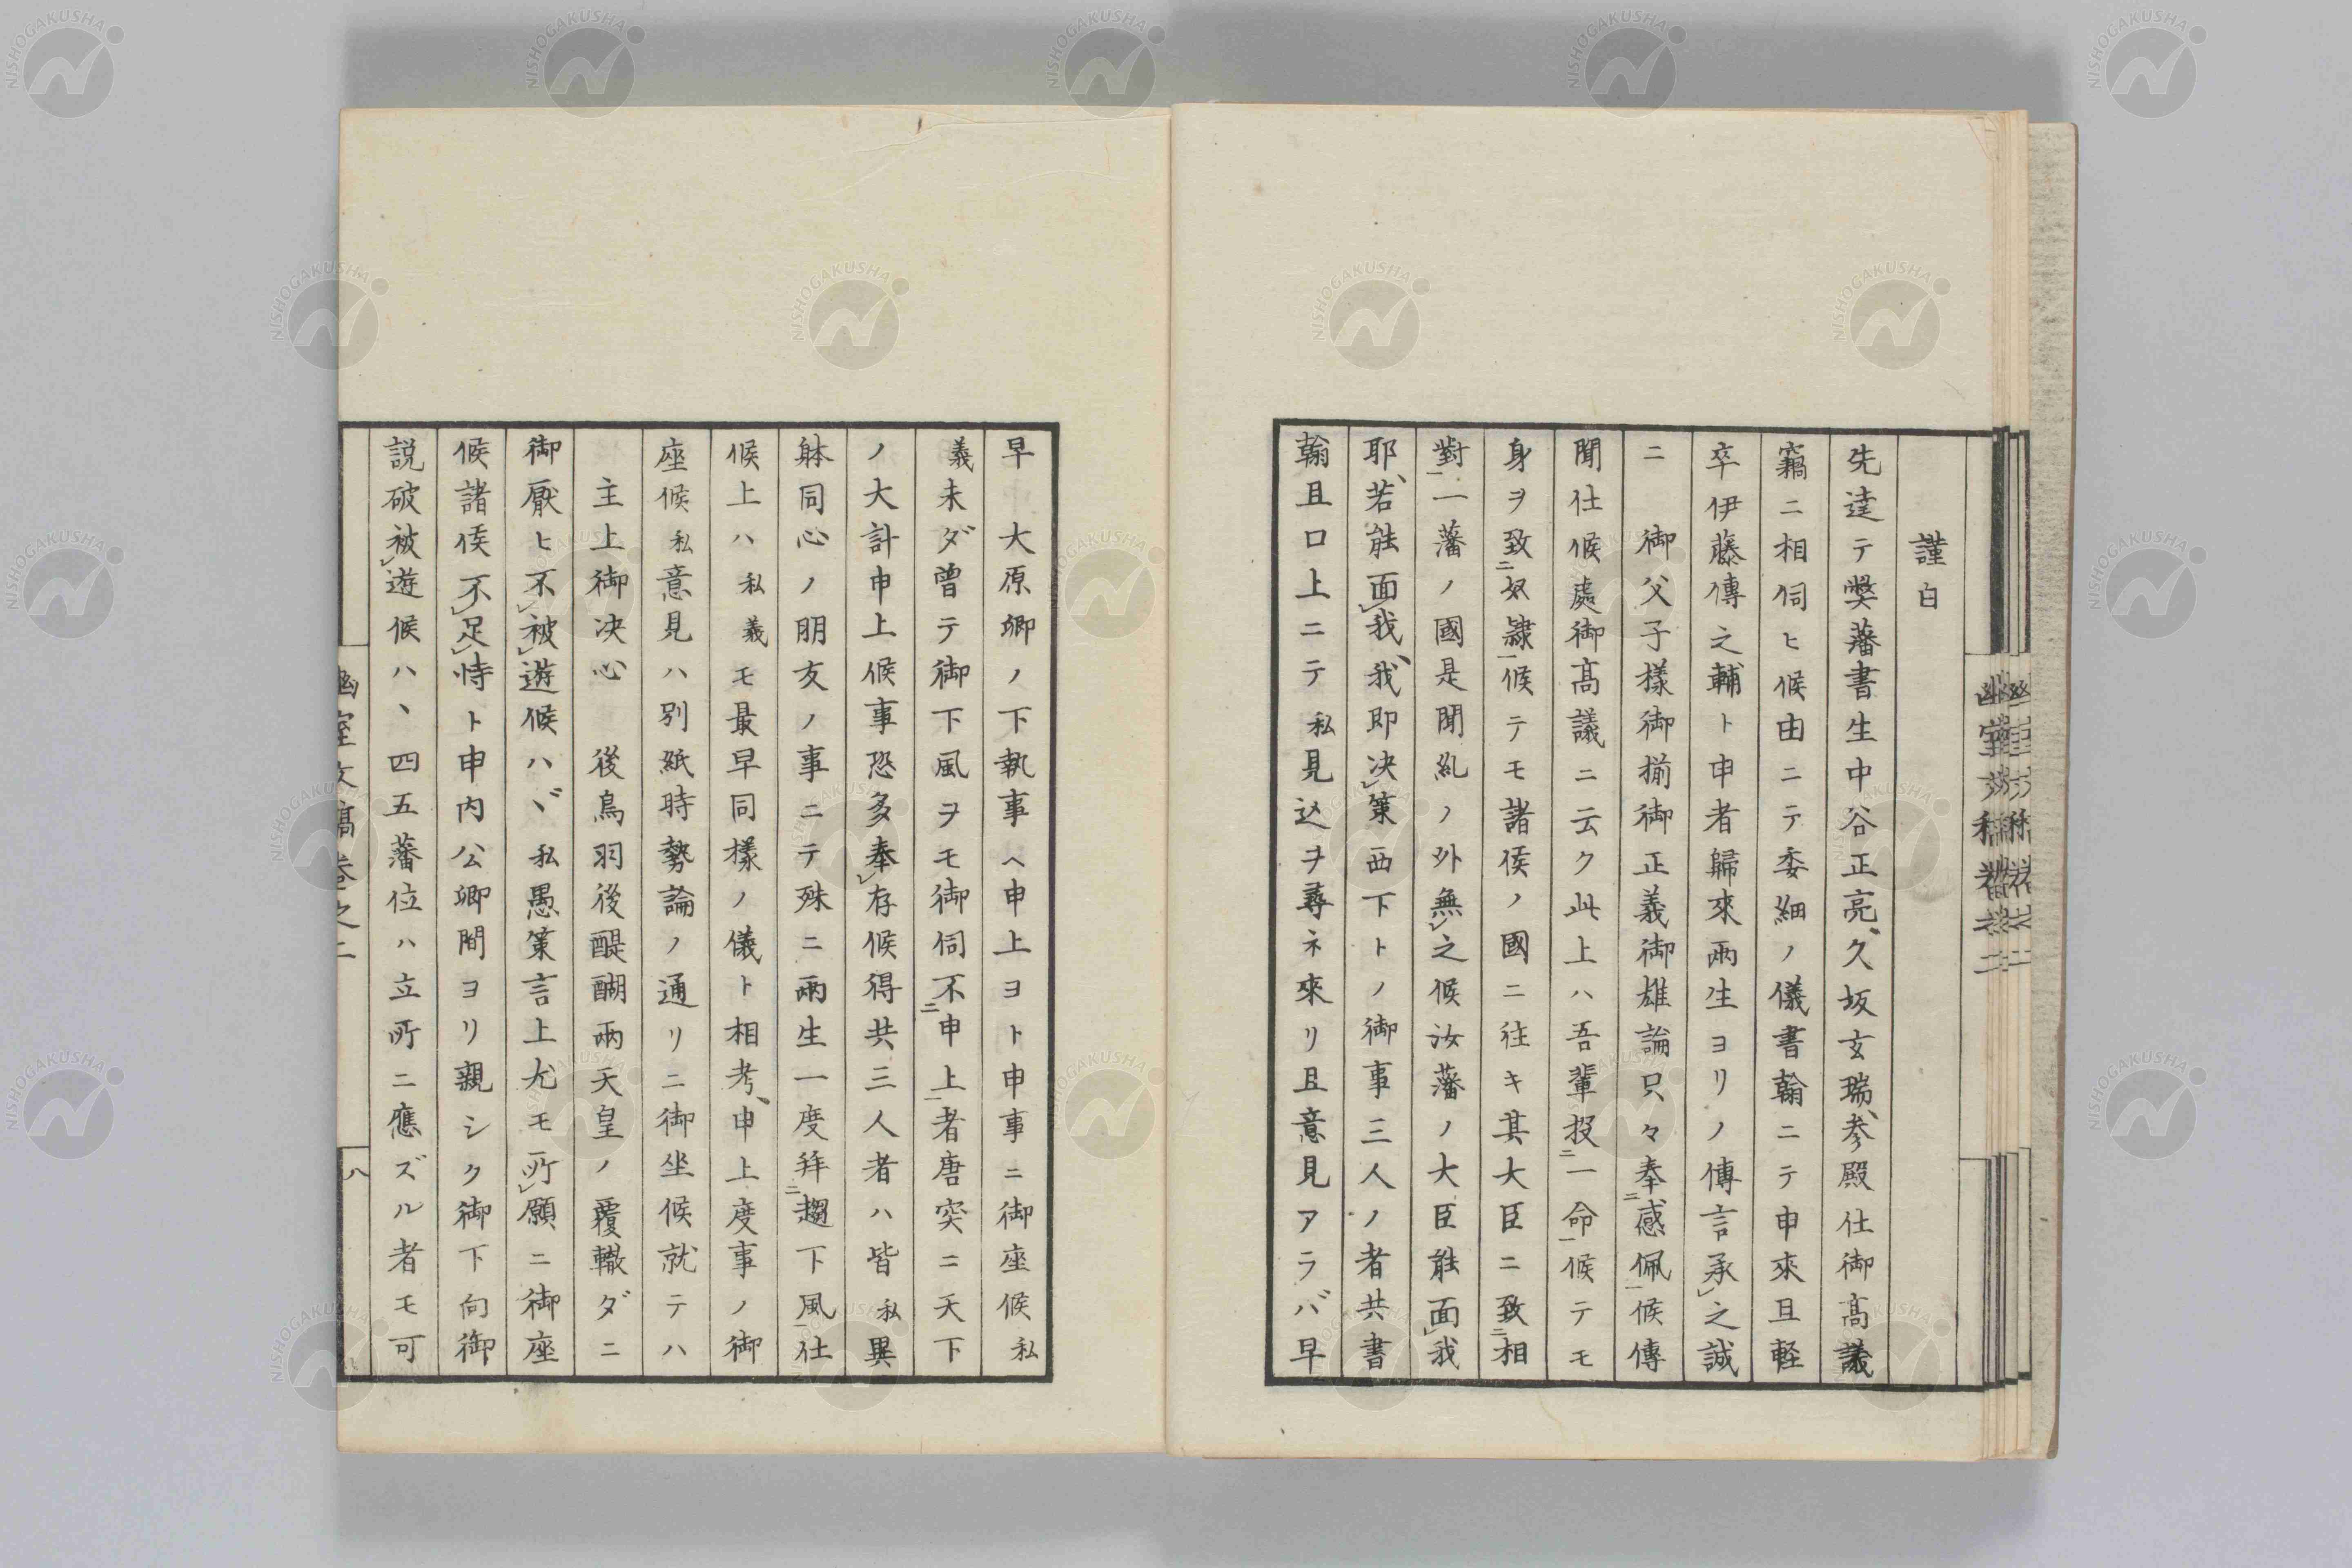 謹白
先達テ弊藩書生中谷正亮、久坂玄瑞、参殿仕御高議
竊ニ相伺ヒ候由ニテ委細ノ儀書翰ニテ申來且軽
卒伊藤傳之輔ト申者歸來兩生ヨリノ傳言承レ之誠
ニ　御父子樣御揃御正義御雄論只々奉二感佩一候傳
聞仕候處御高議ニ云ク此上ハ吾輩投二一命一候テモ
身ヲ致二奴隷一候テモ諸侯ノ國ニ往キ其大臣ニ致二相
對一一藩ノ國是聞糺ノ外無レ之候汝藩ノ大臣能面レ我
耶、若能面レ我、我即決レ策西下トノ御事三人ノ者共書
翰且口上ニテ私見込ヲ尋ネ來リ且意見アラバ早
早　大原卿ノ下執事ヘ申上ヨト申事ニ御座候私
義未ダ曽テ御下風ヲモ御伺不二申上一者唐突ニ天下
ノ大計申上候事恐多奉レ存候得共三人者ハ皆私異
躰同心ノ朋友ノ事ニテ殊ニ兩生一度拜二趨下風一仕
候上ハ私義モ最早同樣ノ儀ト相考、申上度事ノ御
座候私意見ハ別紙時勢論ノ通リニ御坐候就テハ
主上御決心　後鳥羽後醍醐兩天皇ノ覆轍ダニ
御厭ヒ不レ被レ遊候ハヾ私愚策言上尤モ所レ願ニ御座
候諸侯不レ足レ恃ト申内公卿間ヨリ親シク御下向御
説破被レ遊候ハヽ四五藩位ハ立所ニ應ズル者モ可
幽室文稿巻之二
八